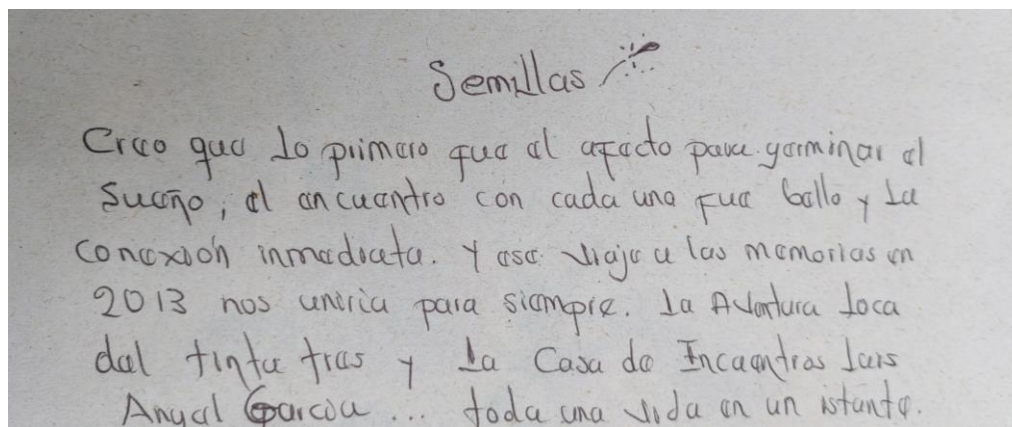 Semillas
Creo que lo primero fue el afecto para germinar el
Sueño, el encuentro con cada uno fue bello y la
conexión inmediata. Y ese viaje a las memorias en
2013 nos uniria para siempre. La Aventura loca
del tinta tras y la Casa de Encuentros Luis
Angel Garcia ... toda una vida en un istante.